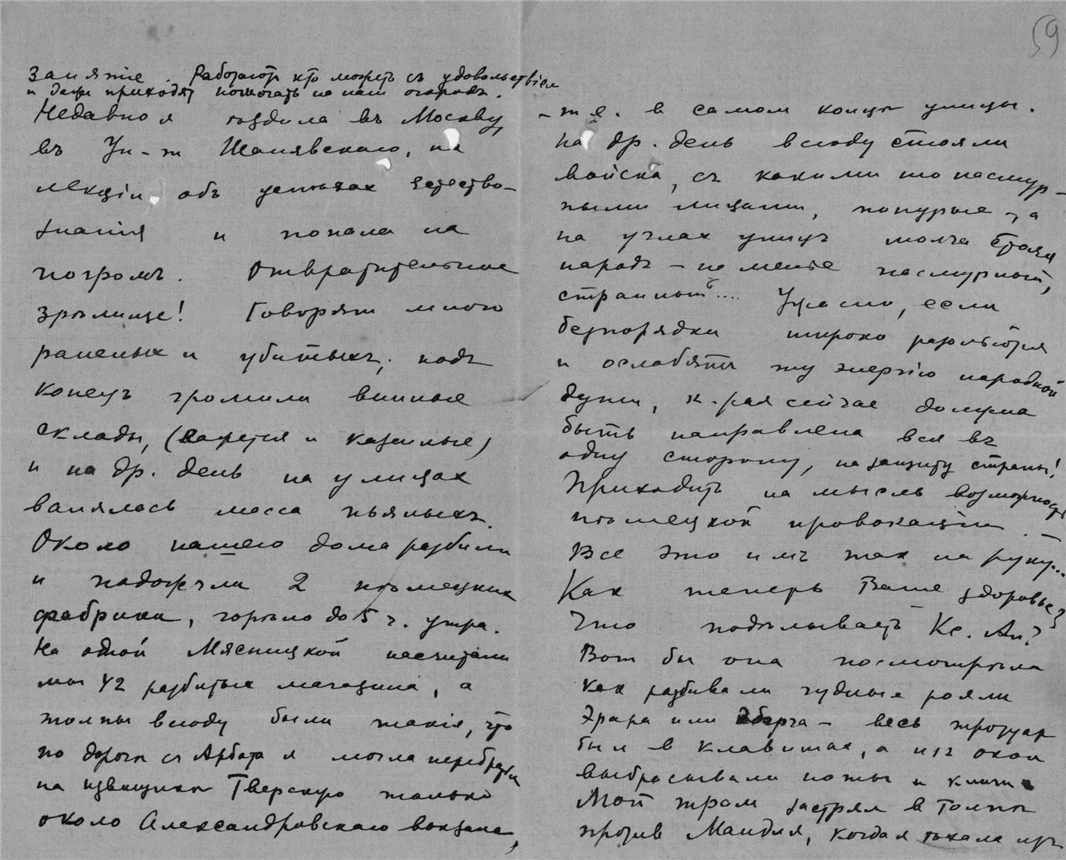 59
занятiе. Работаютъ кто можетъ съ удовольствiем
и даже приходятъ помогать на наш огородъ.
Недавно я ездила въ Москву,
въ Ун-т Шанявскаго, на
лекцiи объ успѣхах естество-
знанiя и попала на
погромъ. Отвратительное
зрѣлище! Говорят много
раненых и убитыхъ; подъ
конецъ громили винные
склады, (кажется и казенные)
и на др. день на улицах
валялось масса пьяныхъ.
Около нашего дома разбили
и подожгли 2 нѣмецких
фабрики, горѣло до 5 ч. утра.
На одной Мясницкой насчитали
мы 42 разбитых магазина, а
толпы всюду были такiя, что
по дороге съ Арбата я могла перебраться
на извощике Тверскую только
около Александровскаго вокзала,
-т.е. в самом конце улицы.
На др. день всюду стояли
войска, съ какими то пасмур-
ными лицами, понурые, а
на углах улицъ молча стоялъ
народъ - не менее пасмурный,
странный.... Ужасно, если
безпорядки широко разольются
и ослабятъ ту энергiю народной
души, к-рая сейчас должна
быть направлена вся въ
одну сторону, на защиту страны!
Приходитъ на мысль возможность
нѣмецкой провокацiи.
Все это имъ так на руку...
Как теперь Ваше здоровье?
Что подѣлываетъ Кс. Ан.?
Вот бы она посмотрѣла
как разбивали чудные рояли
Эрара или - весь тротуар
был в клавишах, а изъ окон
выбрасывали ноты и книги.
Мой трам застрял в толпѣ
против Мандля, когда я ѣхала изъ